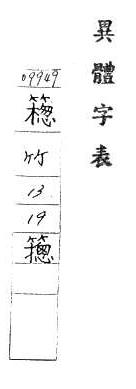 異體字表
09949
竹
13
19